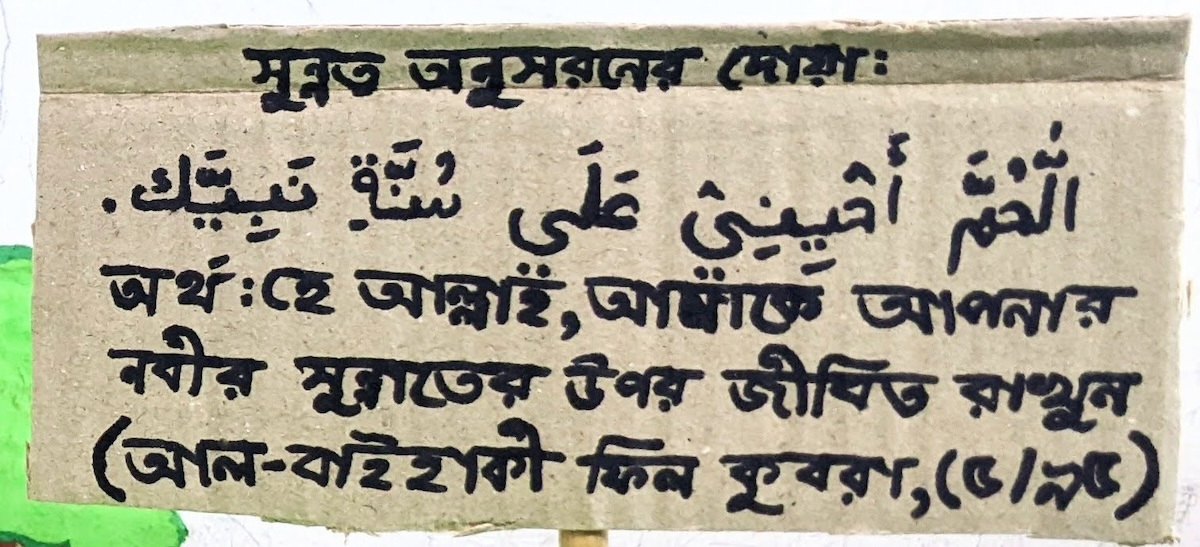 সুন্নত অনুসরনের দোয়া:
اَللّٰهُمَّ أَحْيِيْنِيْ عَلَى سُنَّةِ نَبِيِّكَ.
অর্থ:হে আল্লাহ,আমাকে আপনার
নবীর সুন্নাতের উপর জীবিত রাখুন
(আল-বাইহাকী ফিল কুবরা,(৫/৯৫)